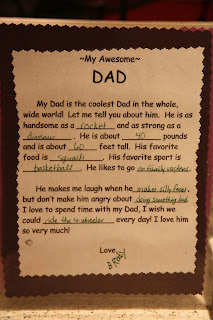 ~My Awesome~
DAD
My Dad is the coolest Dad in the whole,
wide world! Let me tell you about him. He is as
handsome as a rocket and as strong as a
dinosaur. He is about 40 pounds
and is about 60 feet tall. His favorite
food is squash. His favorite sport is
basketball. He likes to go on family vacations.
He makes me laugh when he makes silly faces,
but don't make him angry about doing something bad.
I love to spend time with my Dad, I wish we
could ride the 4-wheeler every day! I love him
so very much!
Love,
Brody